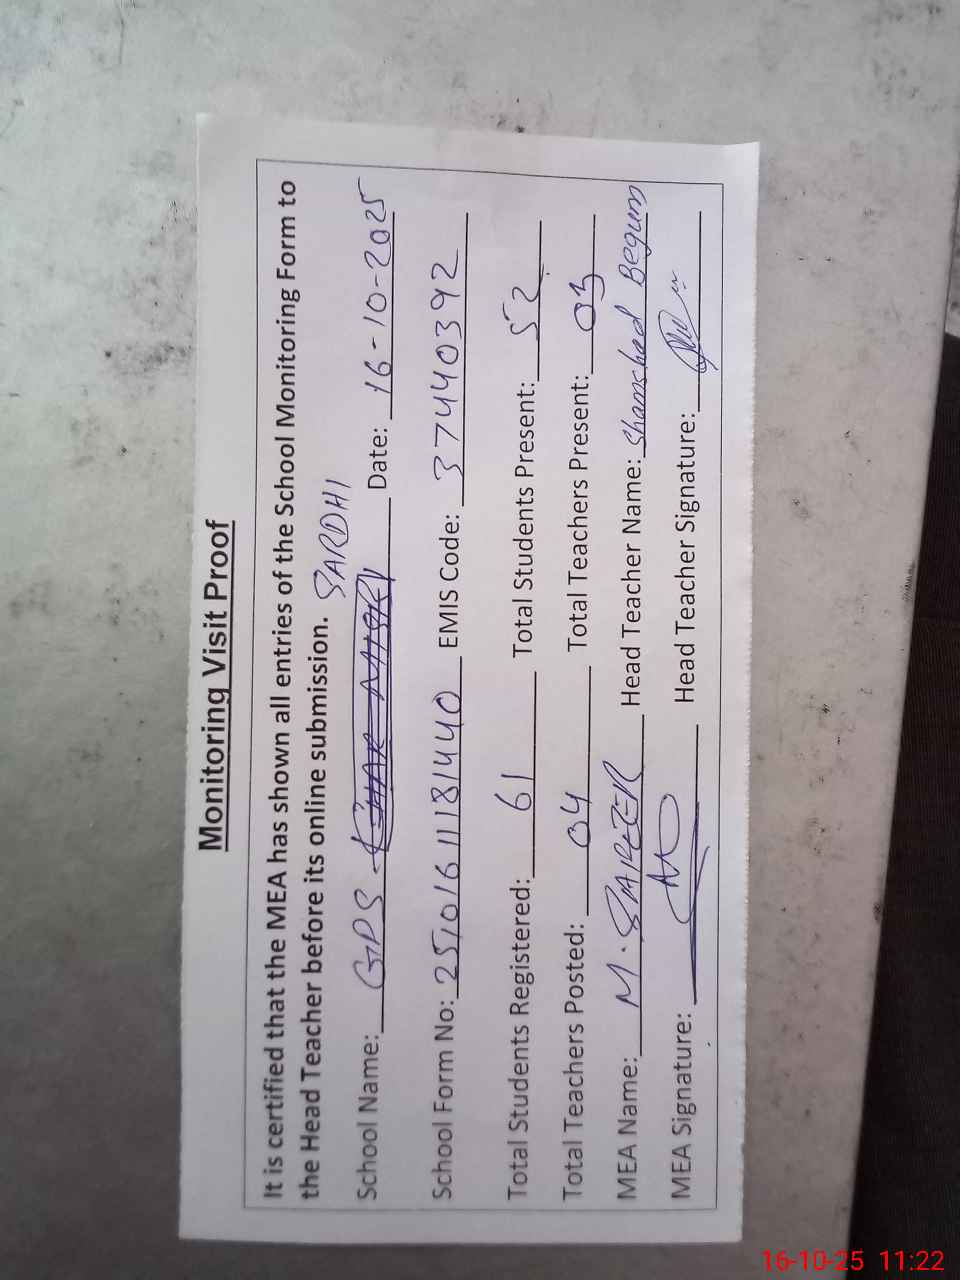 Monitoring Visit Proof
It is certified that the MEA has shown all entries of the School Monitoring Form to
the Head Teacher before its online submission.
SARDHI
School Name: GPS Date: 16-10-2025
School Form No: 25101611181440 EMIS Code: 37440392
Total Students Registered: 61 Total Students Present: 52
Total Teachers Posted: 04 Total Teachers Present: 03
MEA Name: M. Head Teacher Name: Shamshad Begum
MEA Signature: Head Teacher Signature:
16-10-25 11:22